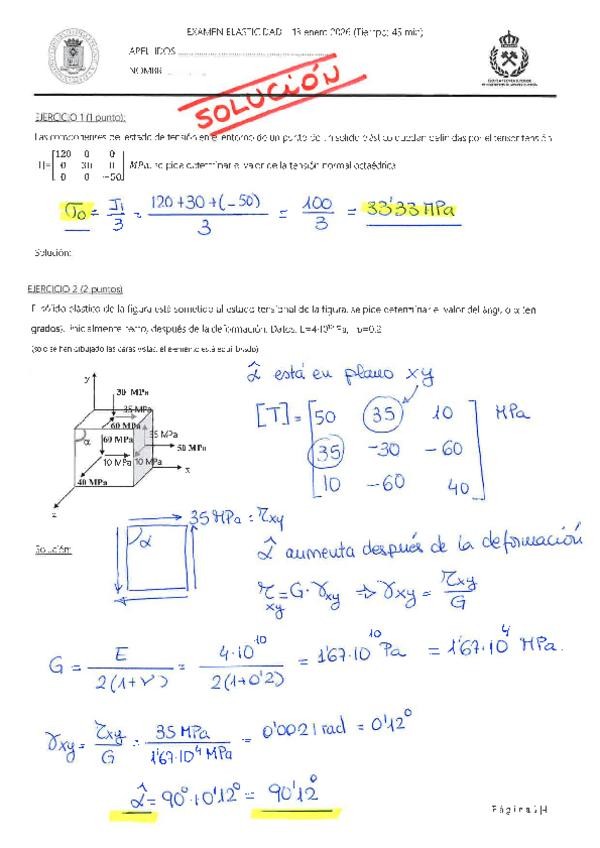 EXAMEN ELASTICIDAD 13 enero 2026 (Tiempo: 45 min)
APELLIDOS
NOMBRE
SOLUCIÓN
EJERCICIO 1 (1 punto):
Las componentes del estado de tensión en el entorno de un punto de un sólido elástico quedan definidas por el tensor tensión
[120 0 0
0 30 0
0 0 -50] MPa, se pide determinar el valor de la tensión normal octaédrica
σ0 = J1/3 = 120+30+(-50)/3 = 100/3 = 33'33 MPa
Solución:
EJERCICIO 2 (2 puntos)
El sólido elástico de la figura está sometido al estado tensional de la figura, se pide determinar el valor del ángulo α (en
grados), inicialmente recto, después de la deformación. Datos: E=4·10¹⁰ Pa, υ=0.2
(solo se han dibujado las caras vistas, el elemento está equilibrado)
α̂ está en plano xy
[T] = [50 35 10
35 -30 -60
10 -60 40] MPa
y
30 MPa
35 MPa
60 MPa
α
60 MPa
35 MPa
50 MPa
x
10 MPa
10 MPa
40 MPa
z
35 MPa = τxy
Solución:
α
α̂ aumenta después de la deformación
τxy = G · γxy ⇒ γxy = τxy/G
G = E/2(1+ν) = 4·10¹⁰/2(1+0'2) = 1'67·10¹⁰ Pa = 1'67·10⁴ MPa.
γxy = τxy/G = 35 MPa/1'67·10⁴ MPa = 0'0021 rad = 0'12°
α̂ = 90° + 0'12° = 90'12°